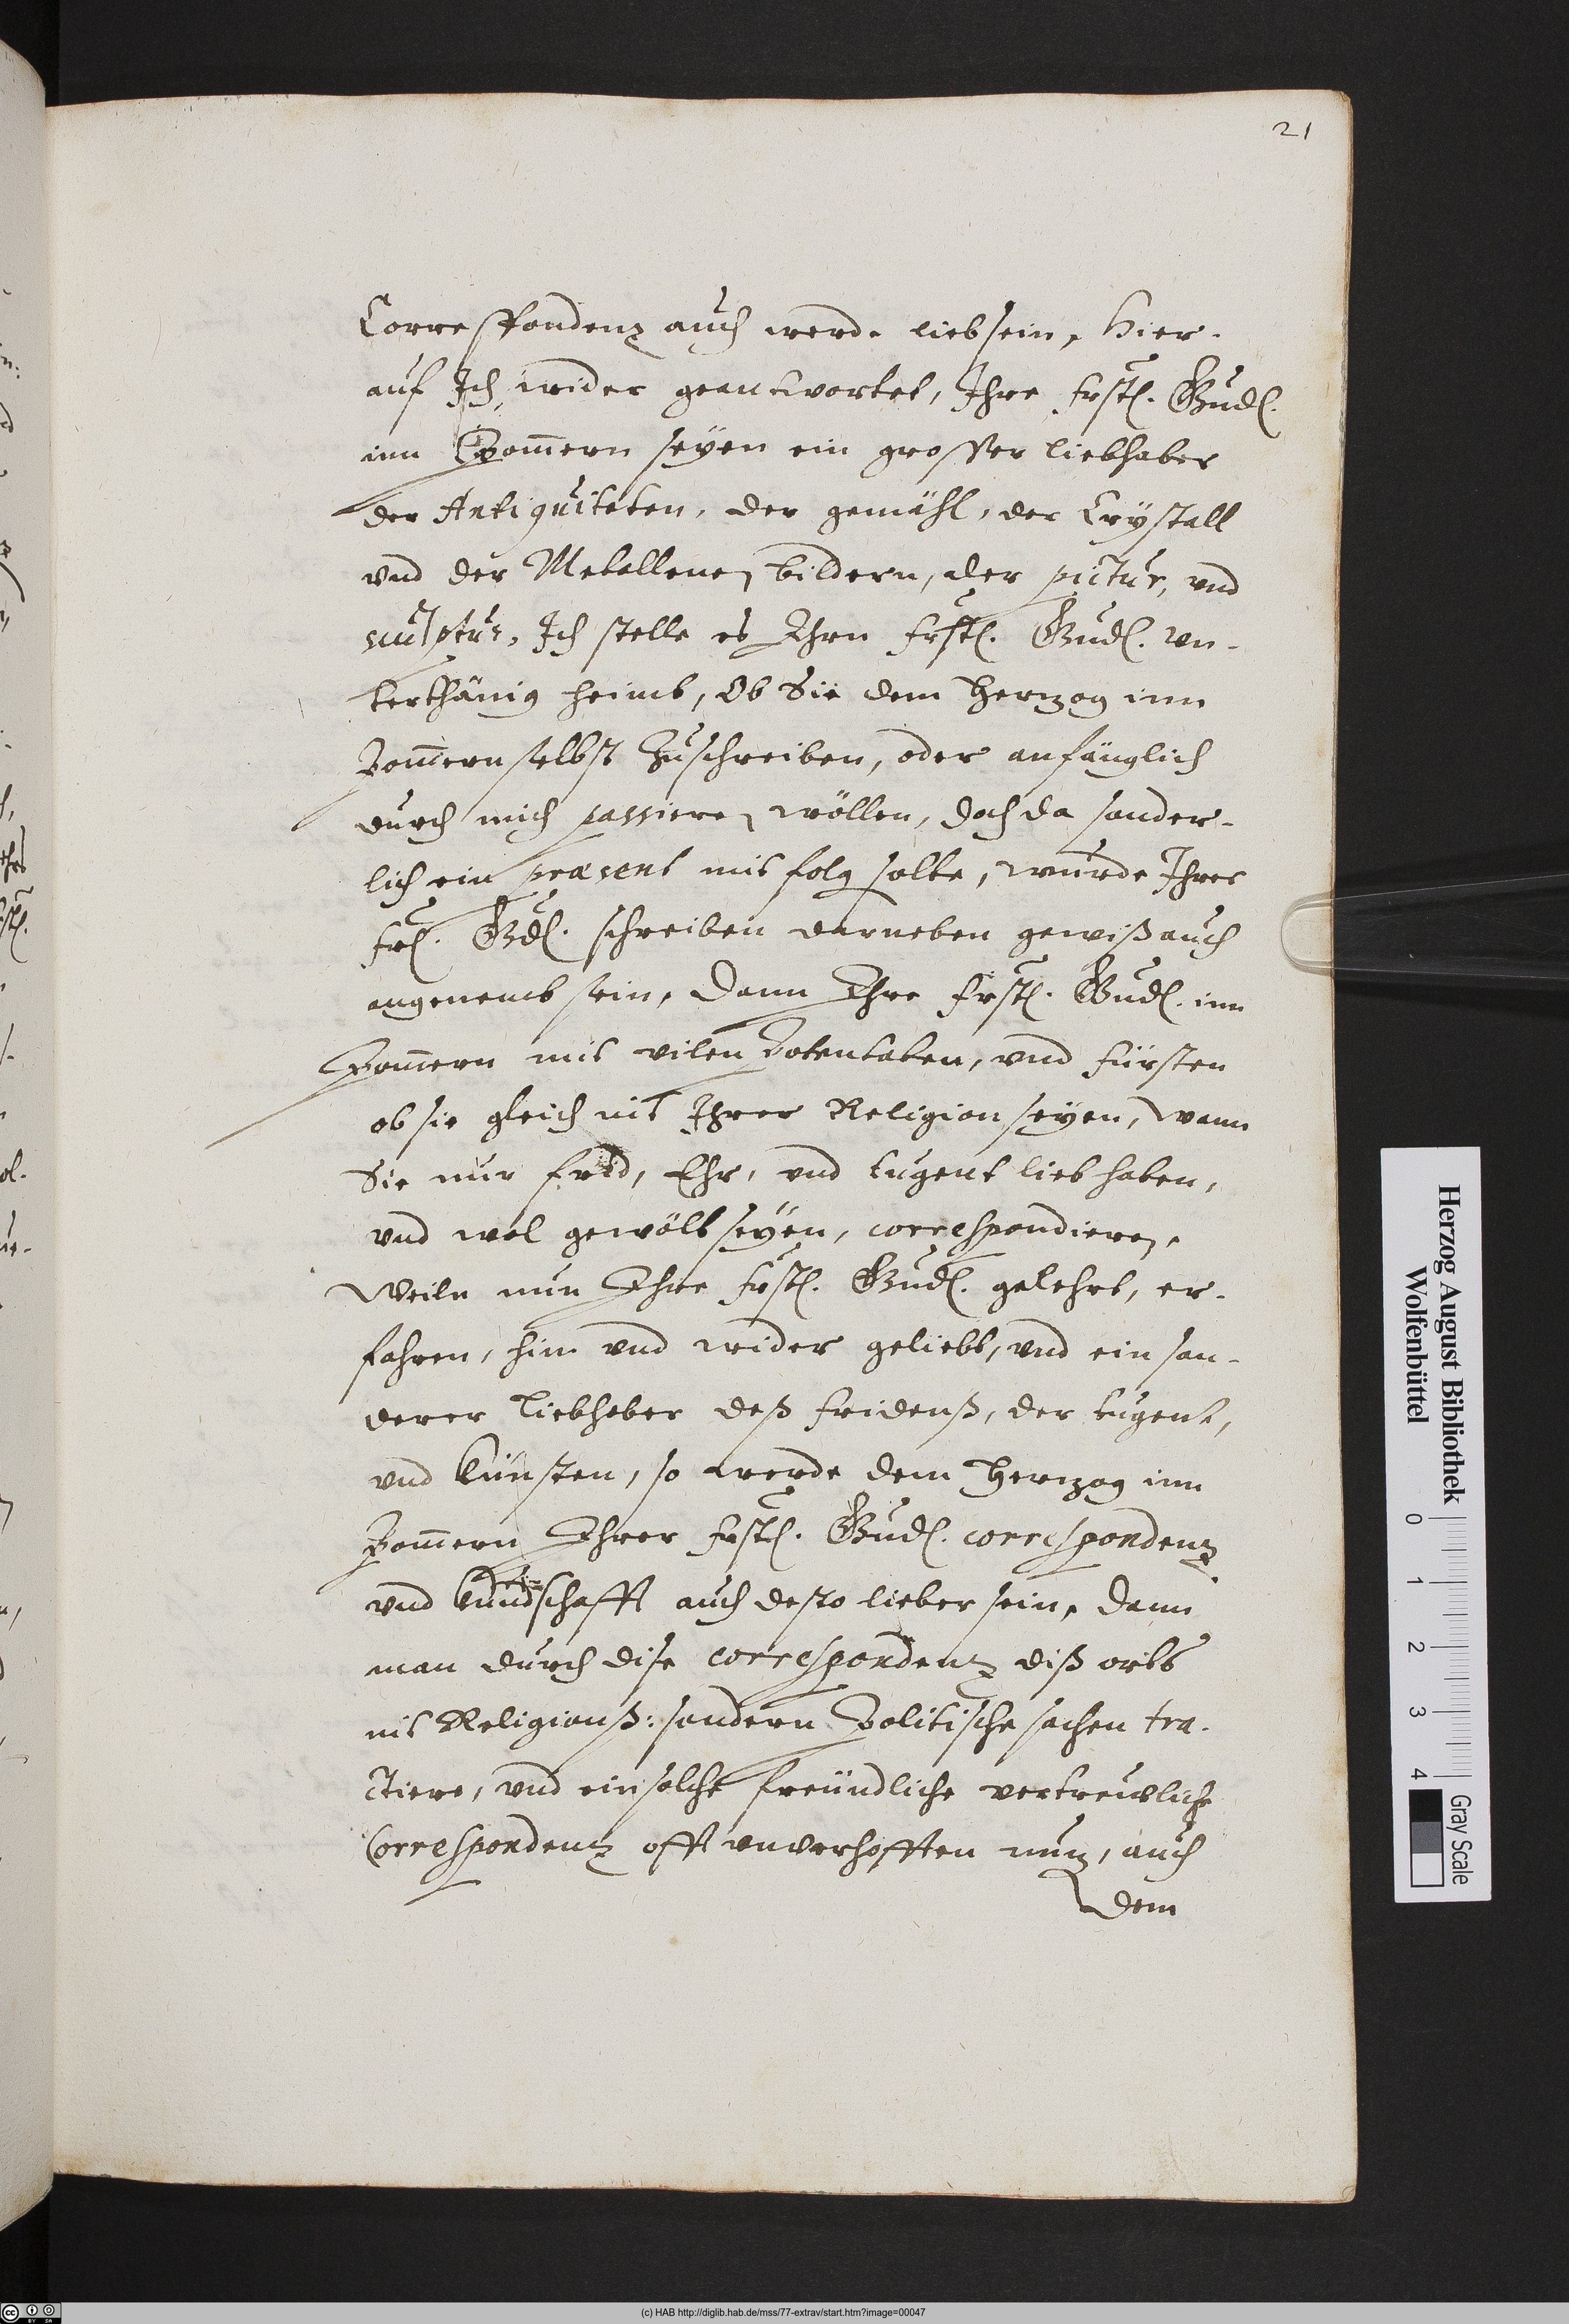 21
Correspondenz auch werde lieb sein, Hier-
auf Ich wider geantwortet, Ihre frstl. Gnd.
inn Pom̄ern seyen ein grosser liebhaber
der Antiquiteten, der gemähl, der Crystall
vnd der Metallenen bildern, der pictur, vnd
sculptur, Ich stelle es Ihrn frstl. Gnd. vn-
terthänig heimb, Ob Sie dem Herzog inn
Pom̄ern selbst zuschreiben, oder anfänglich
durch mich passieren wöllen, doch da sonder-
lich ein præsent mit folg solte, wurde Ihrer
frl. Gd. schreiben darneben gewiß auch
angenemb sein, Dann Ihre frstl. Gnd. inn
Pom̄ern mit vilen Potentaten, vnd fürsten
ob sie gleich nit Ihrer Religion seyen, wann
Sie nur frid, Ehr, vnd tugent lieb haben,
vnd wol gewölt seyen, correspondieren,
Weiln nun Ihre frstl. Gnd. gelehrt, er-
fahren, hin vnd wider geliebt, vnd ein son-
derer liebhaber deß fridenß, der tugent,
vnd künsten, so werde dem Herzog inn
Pom̄ern Ihrer frstl. Gnd. correspondenz
vnd kundschafft auch desto lieber sein, Dann
man durch dise correspondenz diß orts
nit Religionß: sondern Politische sachen tra-
ctiere, vnd ein solche freündliche vertrewliche
Correspondenz offt vnverhofften nuz, auch
Dem
Herzog August Bibliothek
Wolfenbüttel
0 1 2 3 4
Gray Scale
(c) HAB http://diglib.hab.de/mss/77-extrav/start.htm?image=00047